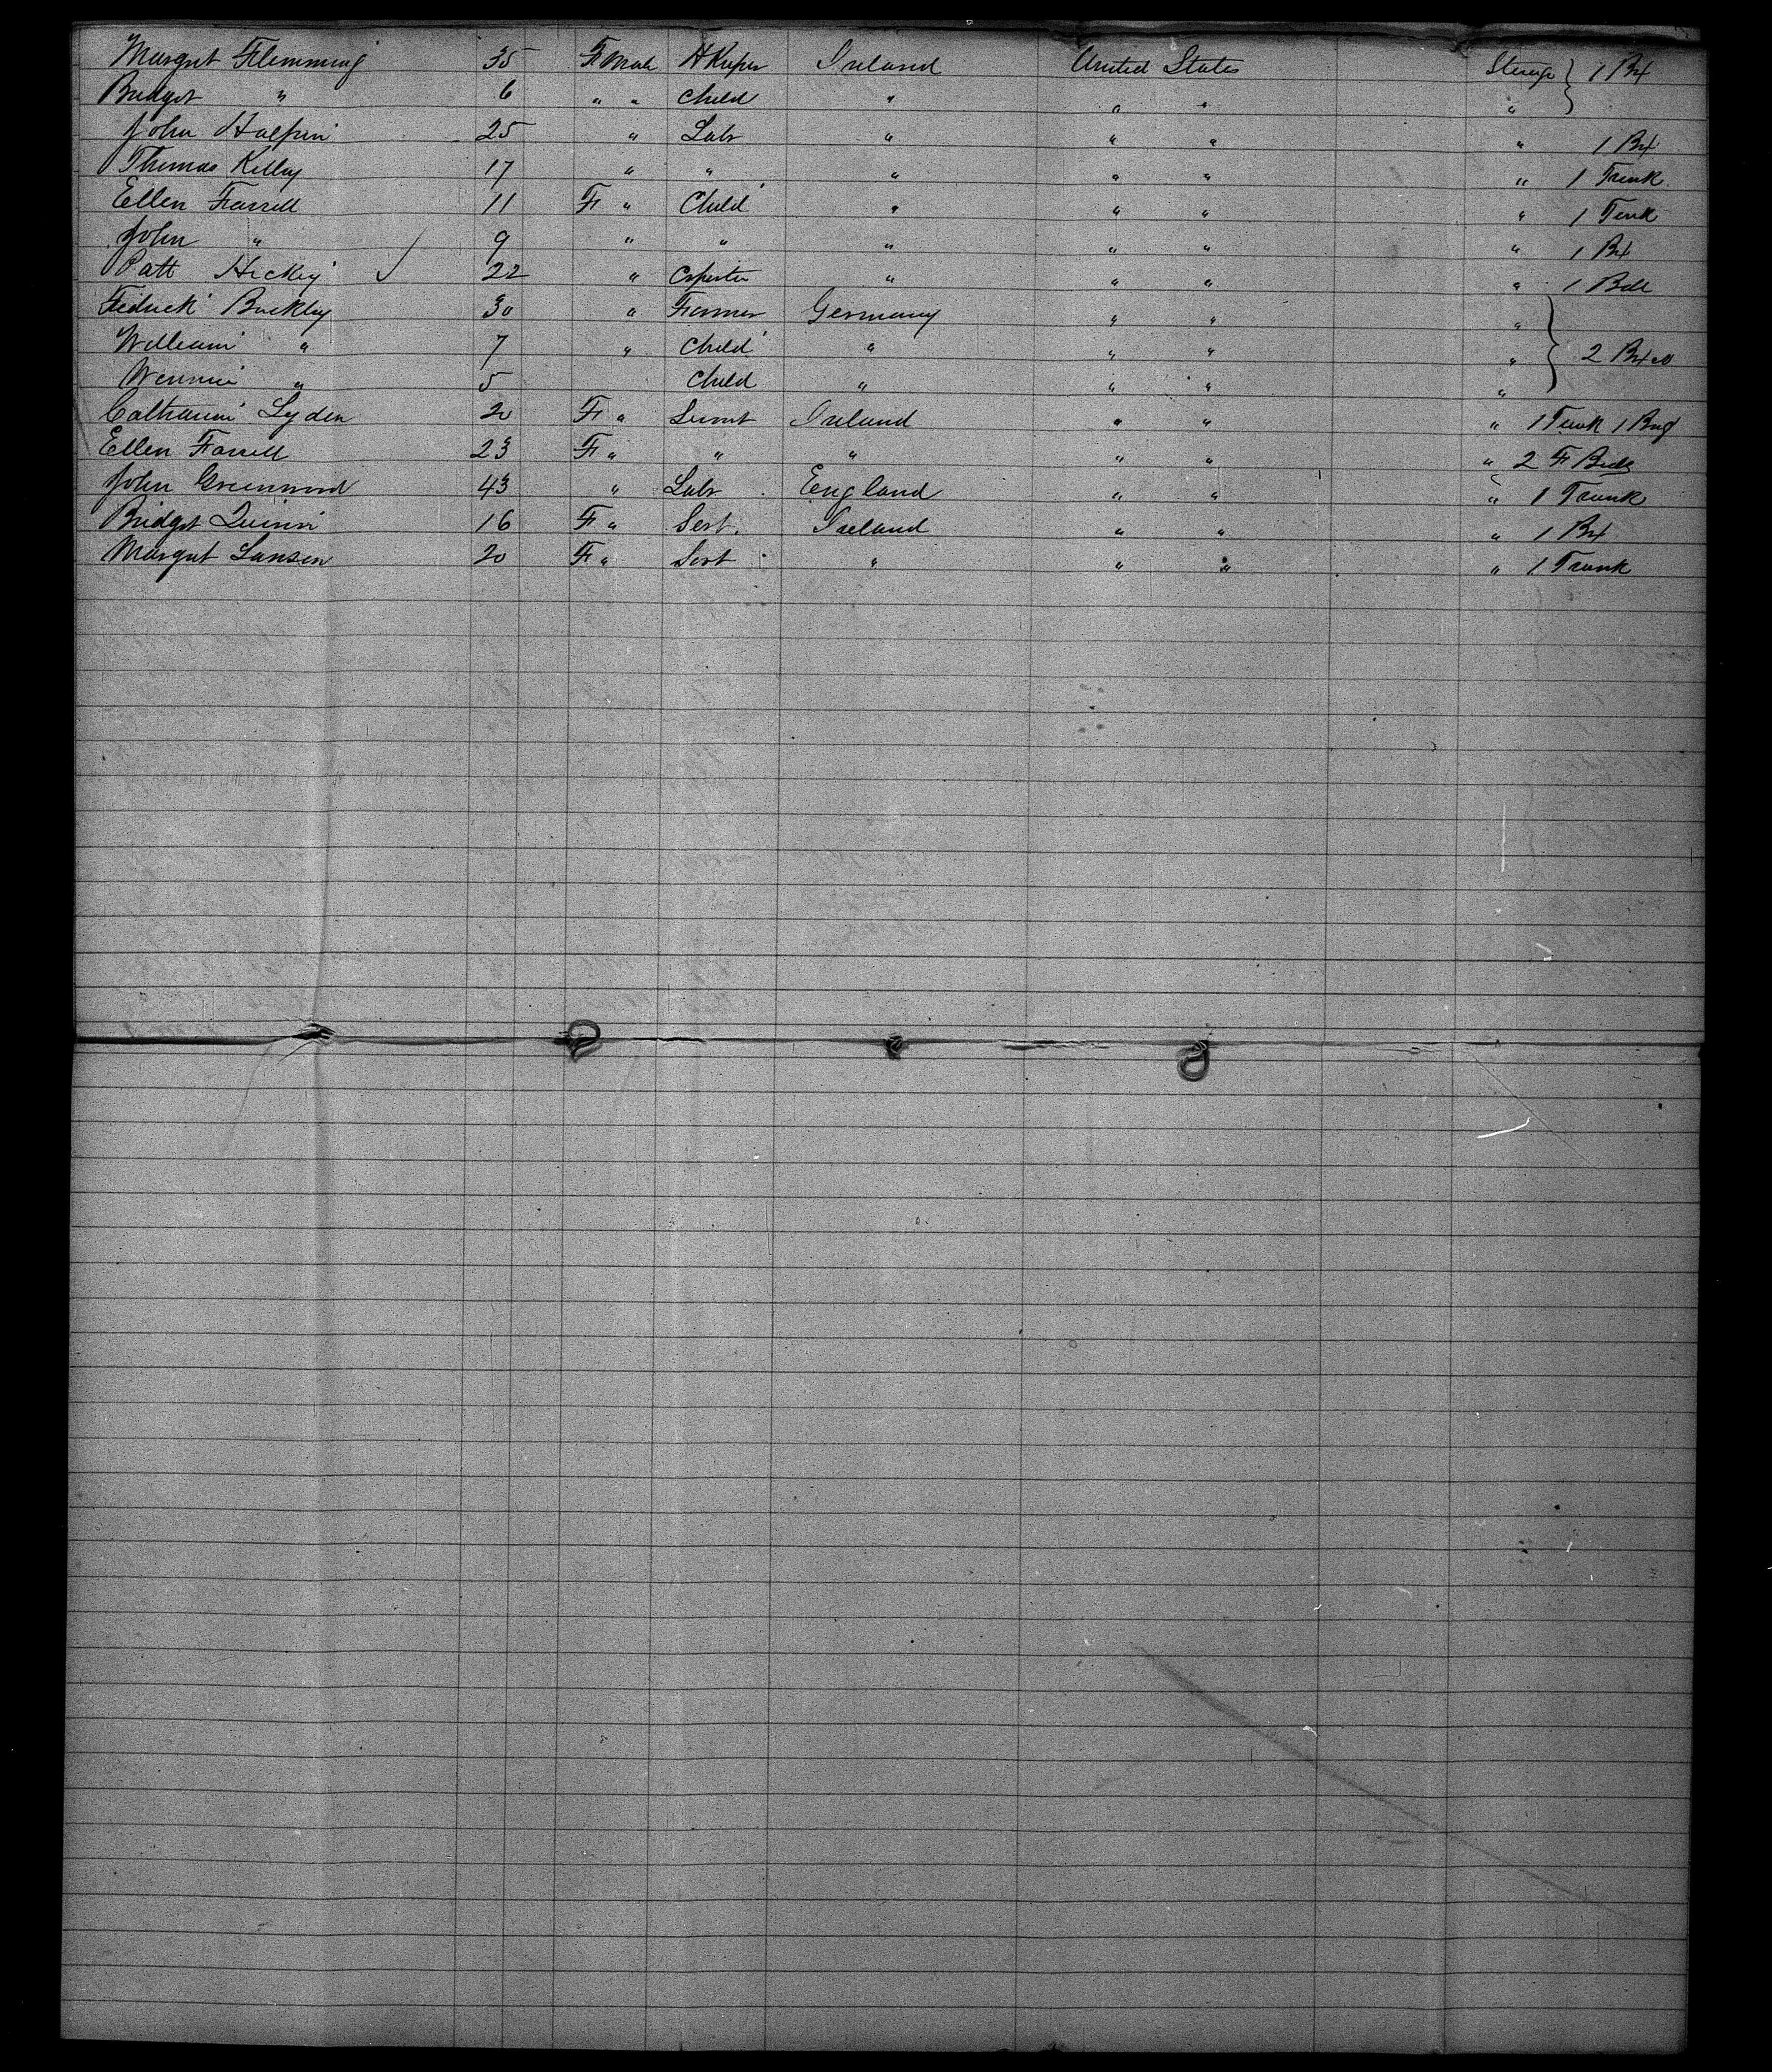 Margret Flemming 35 Female HKeper Ireland United States Sterage } 1 Bx
Bridget " 6 " " Child " " " " }
John Halpin 25 " Labr " " " " 1 Bx
Thomas Kelley 17 " " " " " " 1 Trunk
Ellen Farrell 11 F " Child " " " " 1 Tunk
John " 9 " " " " " " 1 Bx
Patt Hickey ✓ 22 " " " " " 1 Bdl
Fedrick Buckley 30 " Farmer Germany " " " }
William " 7 " Child " " " " } 2 Bxes
" 5 Child " " " " }
Catharine Lyden 20 F " Servnt Ireland " " " 1 Tunk 1 Bag
Ellen Farrell 23 F " " " " " " 2 F Beds
John Greenwood 43 " Labr England " " " 1 Trunk
Bridget Quinn 16 F " Sert. Ireland " " " 1 Bx
Margret Lansen 20 F " Sert " " " " 1 Trunk